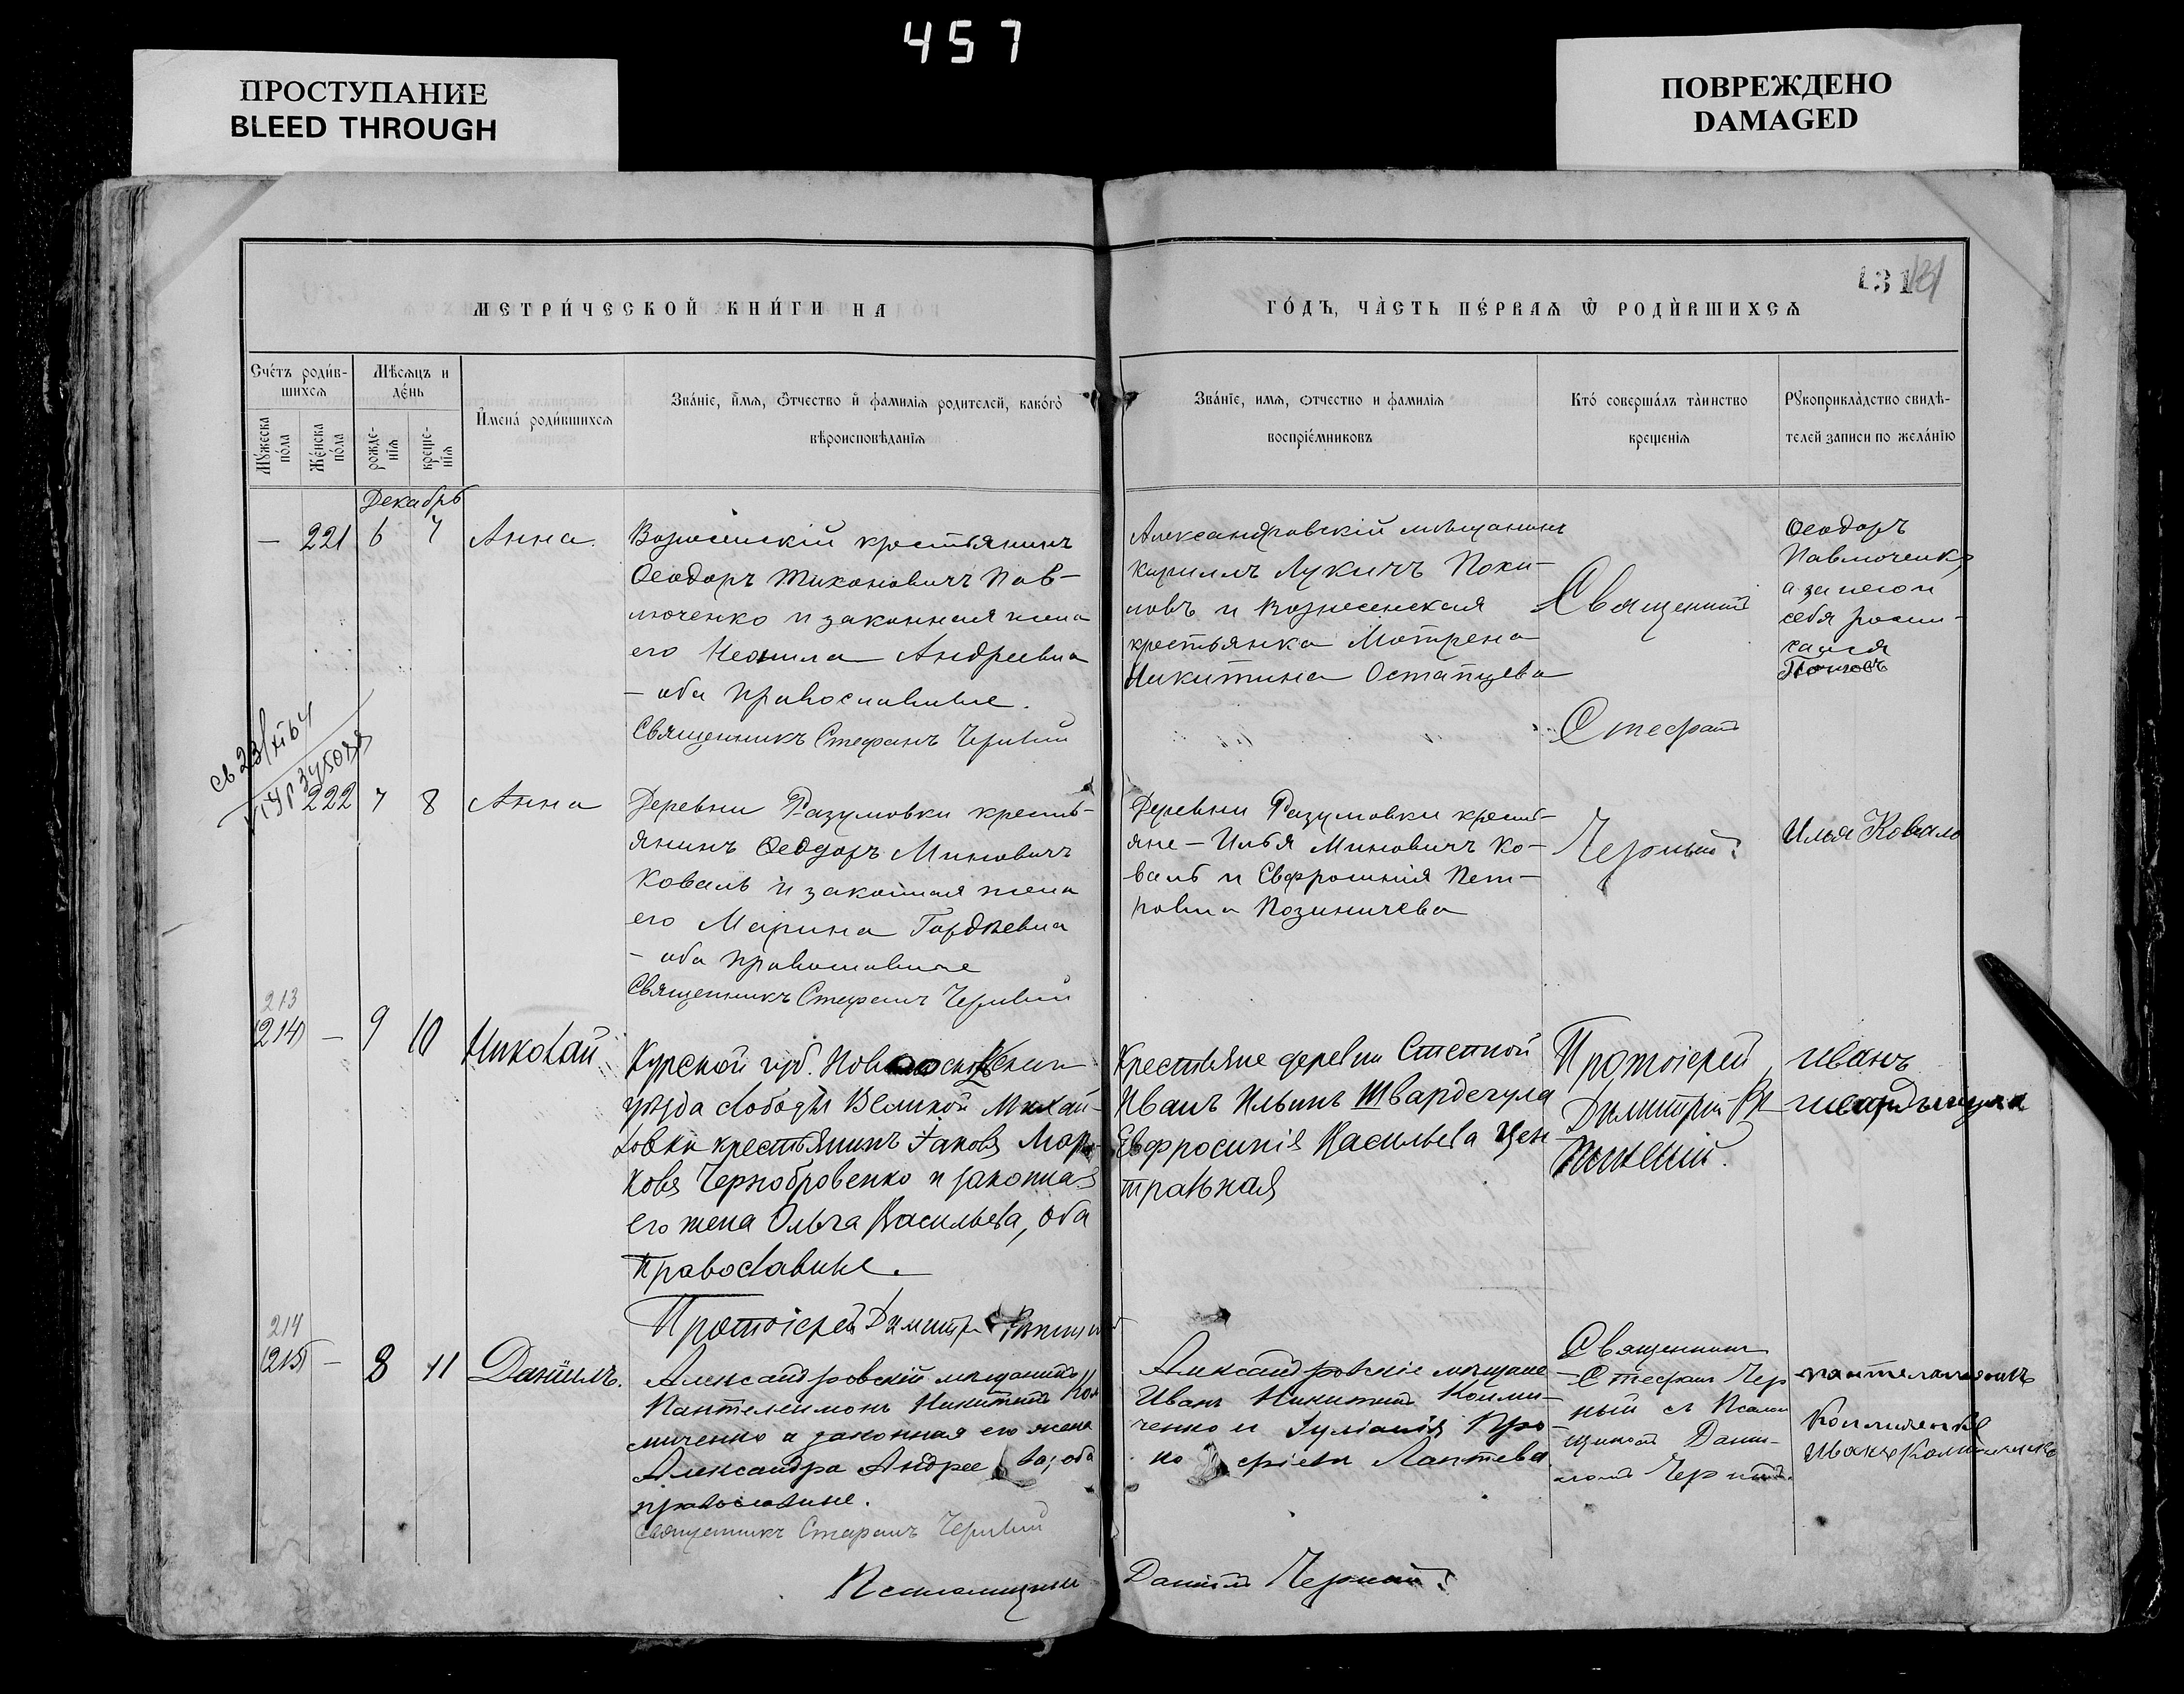 457
ПРОСТУПАНИЕ
BLEED THROUGH
ПОВРЕЖДЕНО
DAMAGED
131
МЕТРИ́ЧЕСКОЙ КНИ́ГИ НА
ГО́ДЪ, ЧА̀СТЬ ПЕ́РВАѦ Ѿ РОДЍВШИХСѦ
Сче́тъ роди́в-
шихсѧ
Мѣсѧцъ и
де́нь
Мꙋ́жеска
по́ла
Же́нска
по́ла
рожде-
нїѧ
креще-
нїѧ
И҆мена̀ роди́вшихсѧ
Зва́нїе, и҆́мѧ, ѻ҆́тчество и҆ фамилїѧ родителей, како́гѡ
вѣроисповѣ́данїѧ
Зва́нїе, имѧ, ѻтчество и фамилїѧ
воспрїе́мниковъ
Кто́ соверша́лъ та̀инство
креще́нїѧ
Рꙋкоприкла́дство свидѣ-
телей записи по жела́нїю
Декабрь
— 221 6 7 Анна.
крестьянинъ
Ѳеодоръ Тихоновичъ Пав-
люченко и законная жена
его Неонила Андреевна
— оба православные.
Священникъ Стефанъ Черный
Александровскій мѣщанинъ
Кириллъ Лукичъ
и вознесенская
крестьянка Мотрена
Никитина Остапцева
Священникъ
Стефанъ
Черный
Ѳеодоръ
Павлюченко
а за него и
себя роспи-
сался
222 7 8 Анна
Деревни Разумовки кресть-
янинъ Ѳеодоръ Миновичъ
Коваль и законная жена
его Марина Гордѣевна
— оба православные
Священникъ Стефанъ Черный
Деревни Разумовки кресть-
яне — Илья Миновичъ Ко-
валь и Евфросинія Пет-
ровна Позиничева
Илья Коваль
213
(214) — 9 10 Николай
Курской губ.
уѣзда слободы Великой Михай-
ловки крестьянинъ Іаковъ Мар-
ковъ Чернобровенко и законная
его жена Ольга Васильева, оба
православные.
Протоіерей Димитрій
Крестьяне деревни Степной
Иванъ Ильинъ Швардегула
Евфросинія Васильева Цен-
тральная
Протоіерей
Димитрій
Иванъ
214
(215) — 8 11 Даніилъ.
Александровскій мѣщанинъ
Пантелеимонъ Никитинъ Кол-
миченко и законная его жена
Александра Андреева, оба
православные.
Священникъ Стефанъ Черный
Александровскіе мѣщане
Иванъ Никитинъ Колми-
ченко и Іуліанія Про-
ко фіева Лаптева
Священникъ
Стефанъ Чер-
ный съ Псалом-
щикомъ Дани-
ломъ Чернымъ.
Пантелеимонъ
Иванъ
Псаломщикъ Даніилъ Черный